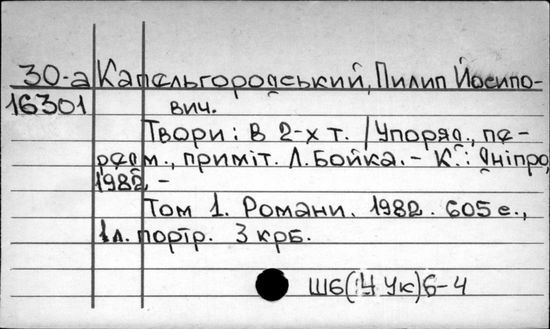 30-а Капельгородський, Пилип Йосипо-
16301 вич.
Твори: В 2-х т. / Упоряд., пе-
редм., приміт. Л. Бойка. - К.: Дніпро,
1982. -
Том 1. Романи. 1982. 605 с.,
1 л. портр. 3 крб.
Ш6(4Ук)6-4